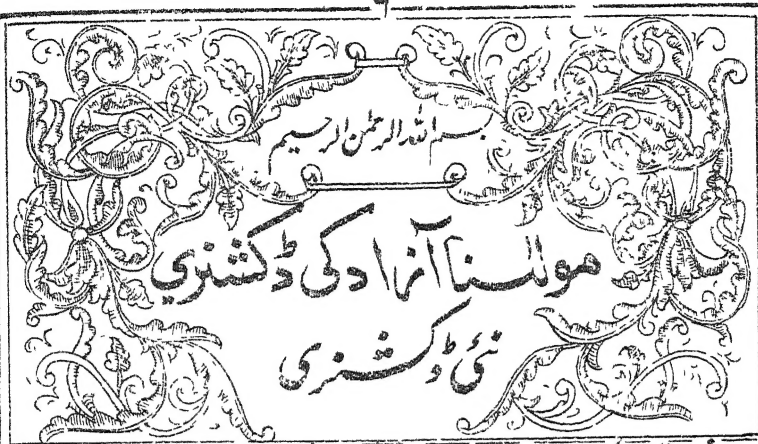 بسم اللہ الرحمن الرحیم
مولٰسنا آزاد کی ڈکشنری
نئی ڈکشنری